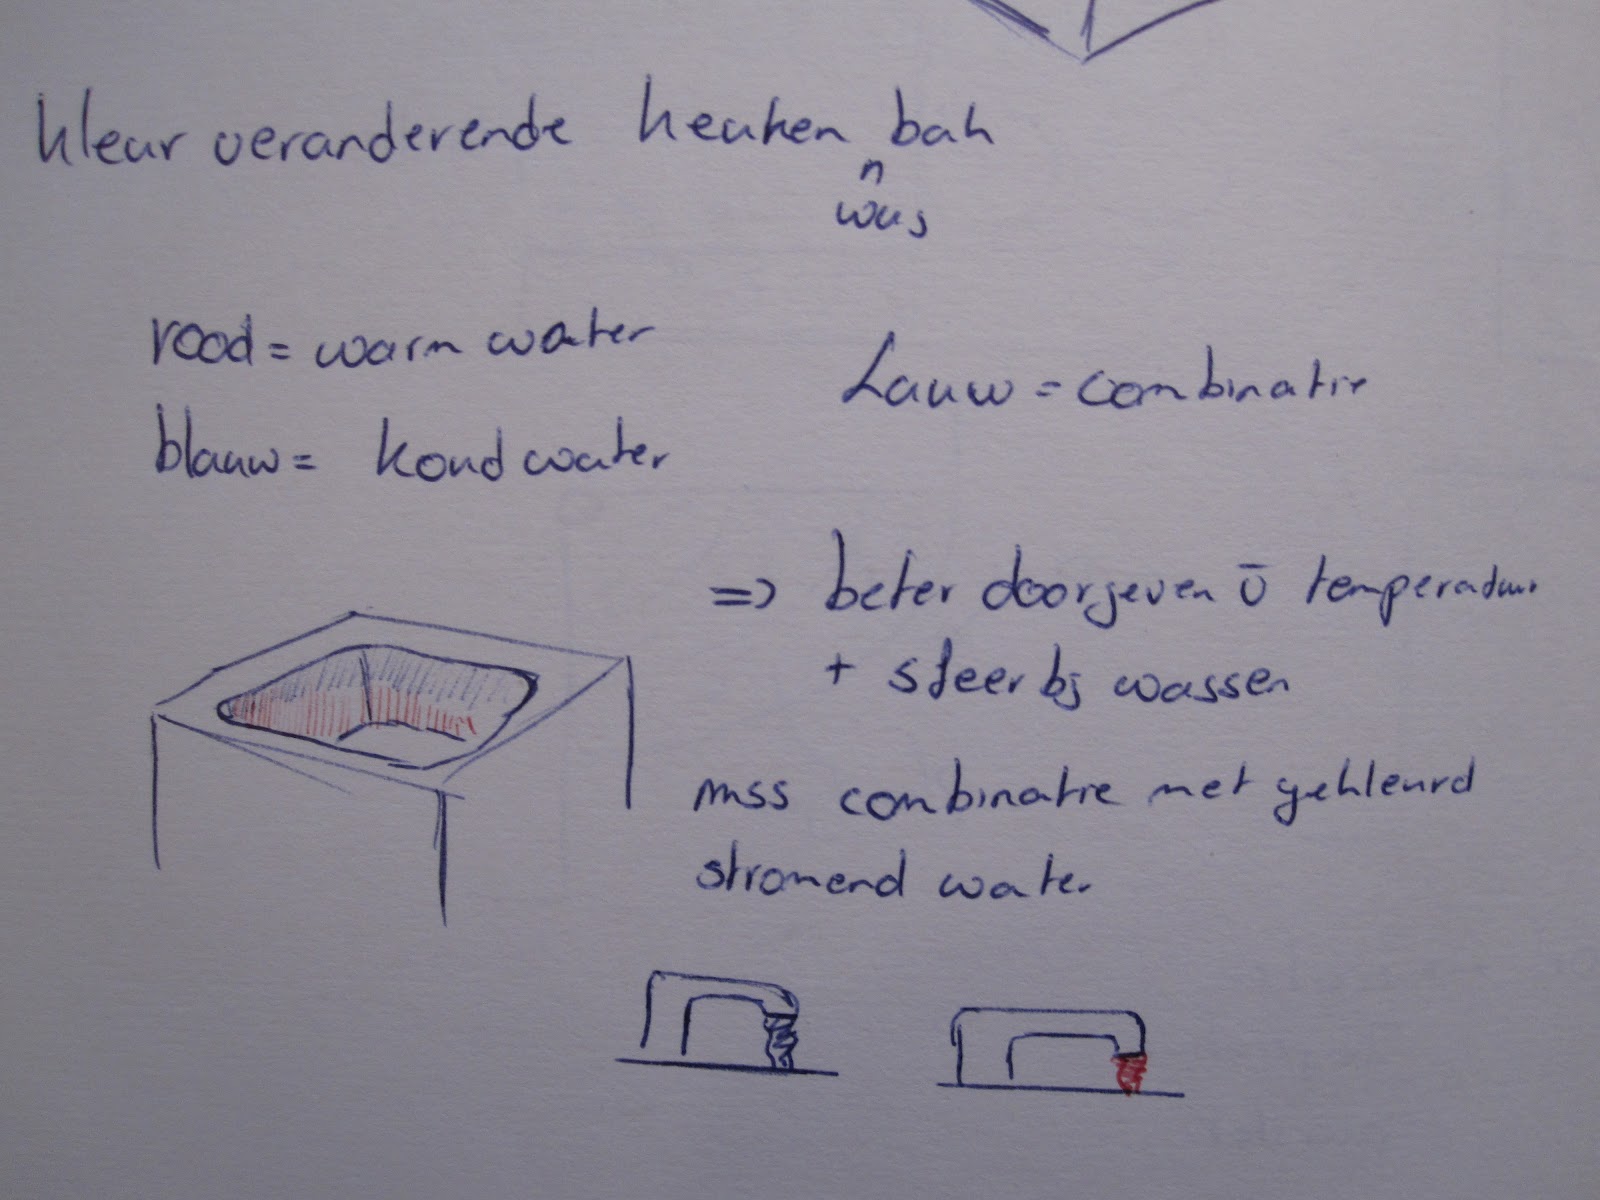 kleur veranderende keuken bak
n
was
rood = warm water
blauw = koud water
Lauw = combinatie
=> beter doorgeven ū temperatuur
+ sfeer bij wassen
mss combinatie met gekleurd
stromend water